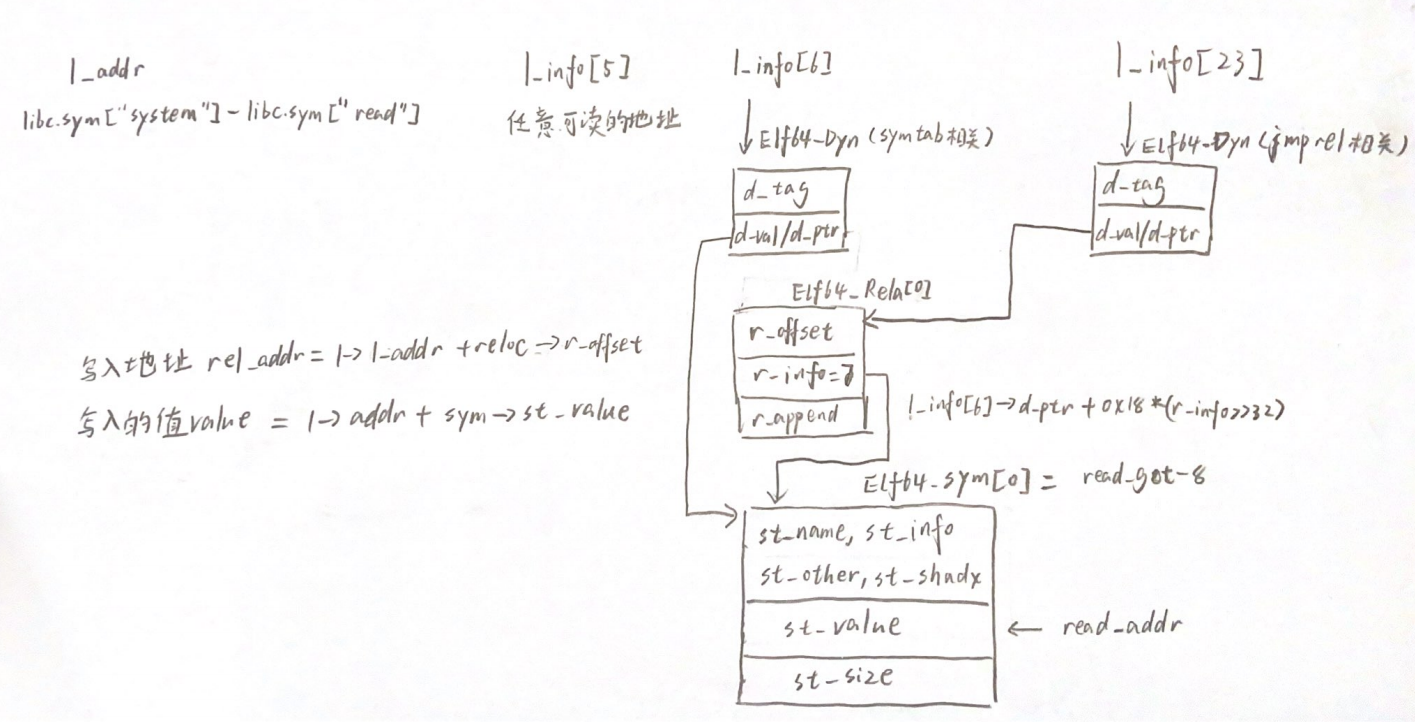 l_addr
libc.sym["system"]-libc.sym["read"]
l_info[5]
任意可读的地址
l_info[6]
Elf64-Dyn (symtab相关)
d_tag
d-val/d-ptr
l_info[23]
Elf64-Dyn (jmprel相关)
d-tag
d-val/d-ptr
Elf64_Rela[0]
r_offset
r-info=7
r_append
写入地址 rel_addr = l->l_addr + reloc->r_offset
写入的值value = l->addr + sym->st_value
l_info[6]->d_ptr + 0x18*(r_info>>32)
Elf64-Sym[0] = read_got-8
st_name, st_info
st_other, st_shndx
st_value
← read_addr
st_size